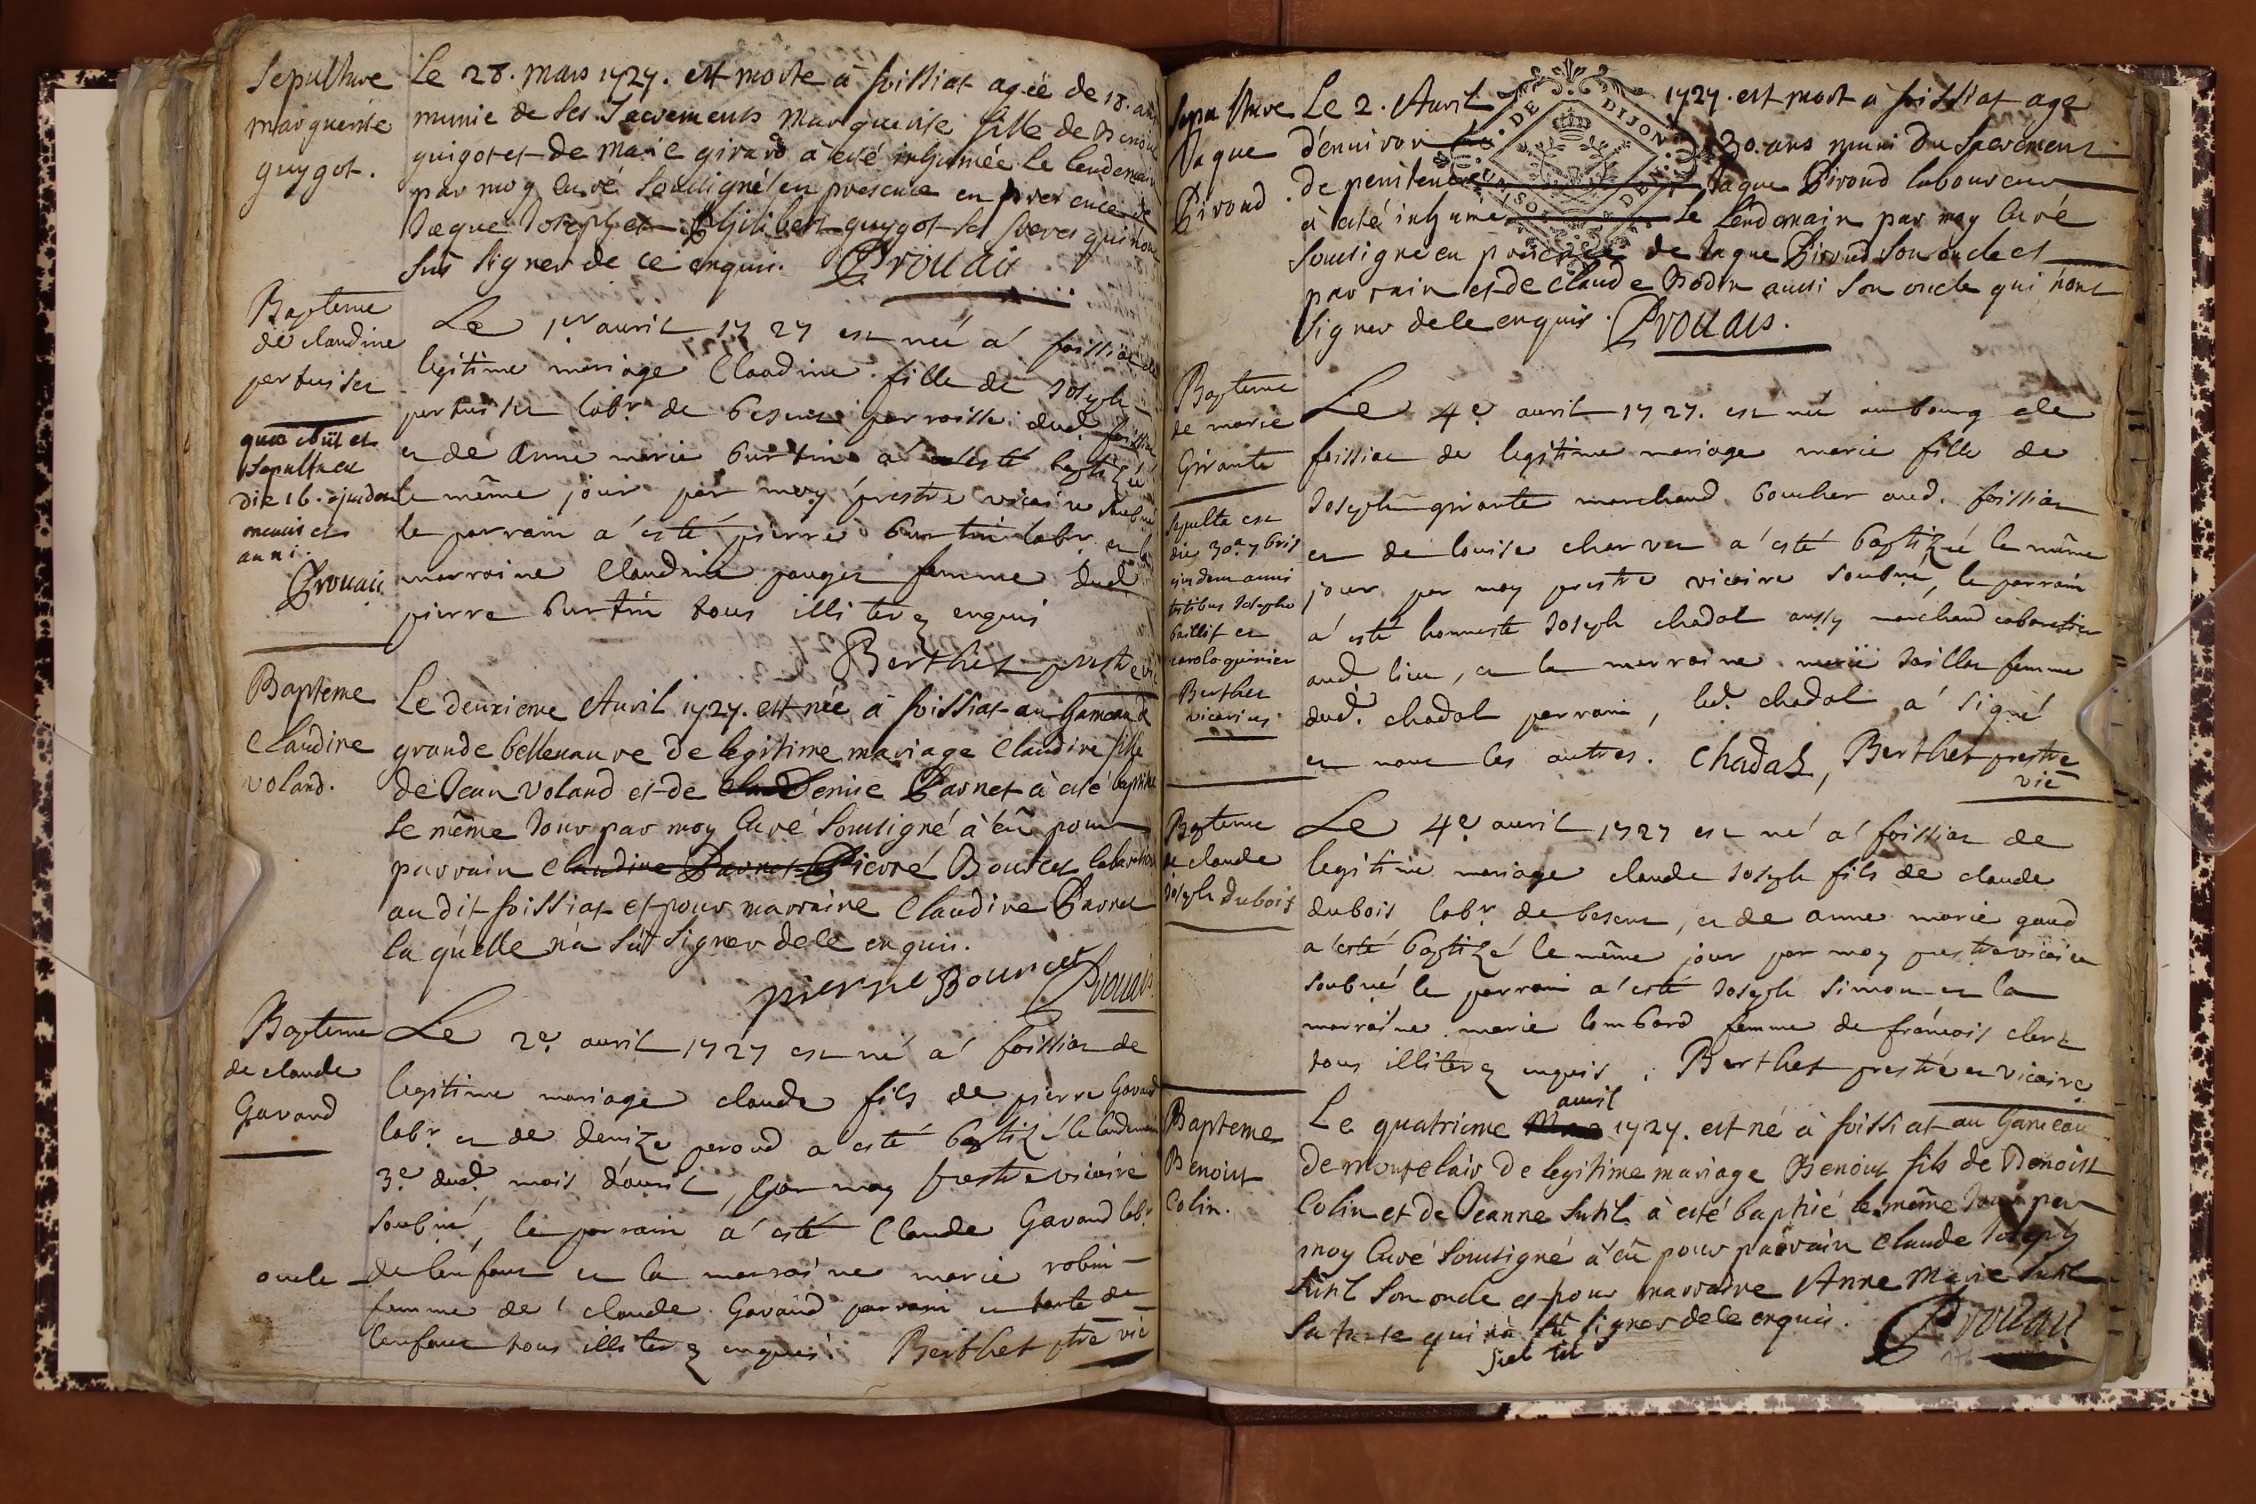 Sepulture
marguerite
guygot.
Le 28. mars 1727. est morte à foissiat agée de 18. ans
munie de ses Sacrements marguerite fille de Benoist
guigot et de marie girard à eté inhumée le lendemain
par moy Curé Soussigné en presence en presence de
Jaque Joseph et Philibert guygot ses freres qui n'ont
sus signer de ce enquis. Prouais
Bapteme
de claudine
pertuiset
Le 1er avril 1727 est née a foissiat de
legitime mariage Claudine fille de Joseph
pertuiset labr de besent parroisse dud. foissiat
et de anne marie burtin a esté baptizée
le même jour par moy prestre vicaire soubné
le parrain a esté pierre burtin labr. et la
marraine Claudine pauget femme dud
pierre burtin tous illiterez enquis
Berthet prestre vic
quae obiit et
Sepulta est
die 16. ejusdem
mensis et
anni.
Prouais
Bapteme
Claudine
voland.
Le deuxieme Avril 1727. est née à foissiat au hameau de
grande bellevavre de legitime mariage Claudine fille
de Jean Voland et de Denise Parnet à eté baptisée
le même Jour par moy Curé Soussigné à eû pour
parrain claudine Parnet Pierre Bourcet
au dit foissiat et pour marraine Claudine Parnet
la quelle n'a sût signer de le enquis.
pierre Bourcet Prouais
Bapteme
de claude
Gavand
Le 2e. avril 1727 est né a foissiat de
legitime mariage claude fils de pierre Gavand
labr et de denize peroud a esté baptizé le landemain
3e. dud. mois d'avril, par moy prestre vicaire
soubné, le parrain a esté Claude Gavand labr
oncle de lenfant et la marraine marie robin
femme de claude Gavand parrain et tante de
lenfant tous illiterez enquis. Berthet ptre vic
Sepulture
Jaque
Piroud
Le 2. Avril 1727. est mort à foissiat agé
d'environ 30. ans muni du Sacrement
de penitence Jaque Piroud laboureur
à eté inhumé le Lendemain par moy Curé
Soussigné en presence de Jaque Piroud son oncle et
parrain et de Claude Bodin aussi Son oncle qui n'ont
signer de le enquis. Prouais.
DE DIJON
Bapteme
de marie
Girante
Le 4e. avril 1727. est née au bourg de
foissiat de legitime mariage marie fille de
Joseph girante marchand boucher aud. foissiat
et de louise chervet a esté baptizée le même
jour par moy prestre vicaire soubné, le parrain
a esté honneste Joseph chadal aussy marchand cabaretier
aud lieu, et la marraine marie Saillet femme
dud. chadal parrain, led. chadal a signé
et non les autres. Chadal, Berthet prestre
vic
Sepulta est
die 30a 7bris
ejusdem anni
testibus Josepho
baillif et
carolo guinier
Berthet
vicarius
Bapteme
de claude
Joseph dubois
Le 4e. avril 1727 est né a foissiat de
legitime mariage claude Joseph fils de claude
dubois labr de besent, et de anne marie gaud
a esté baptizé le même jour par moy prestre vicaire
soubné, le parrain a esté Joseph Simon et la
marraine marie lombard femme de françois clerc
tous illiterez enquis. Berthet prestre et vicaire
Bapteme
Benoist
Colin.
avril
Le quatrieme 1727. est né à foissiat au hameau
de montclair de legitime mariage Benoist fils de Benoist
Colin et de Jeanne Sutil à eté baptisé le même Jour par
moy Curé Soussigné à eû pour parrain Claude Joseph
Sutil Son oncle et pour marraine Anne Marie Sutil
Sa tante qui n'a sû signer de le enquis.
Prouais